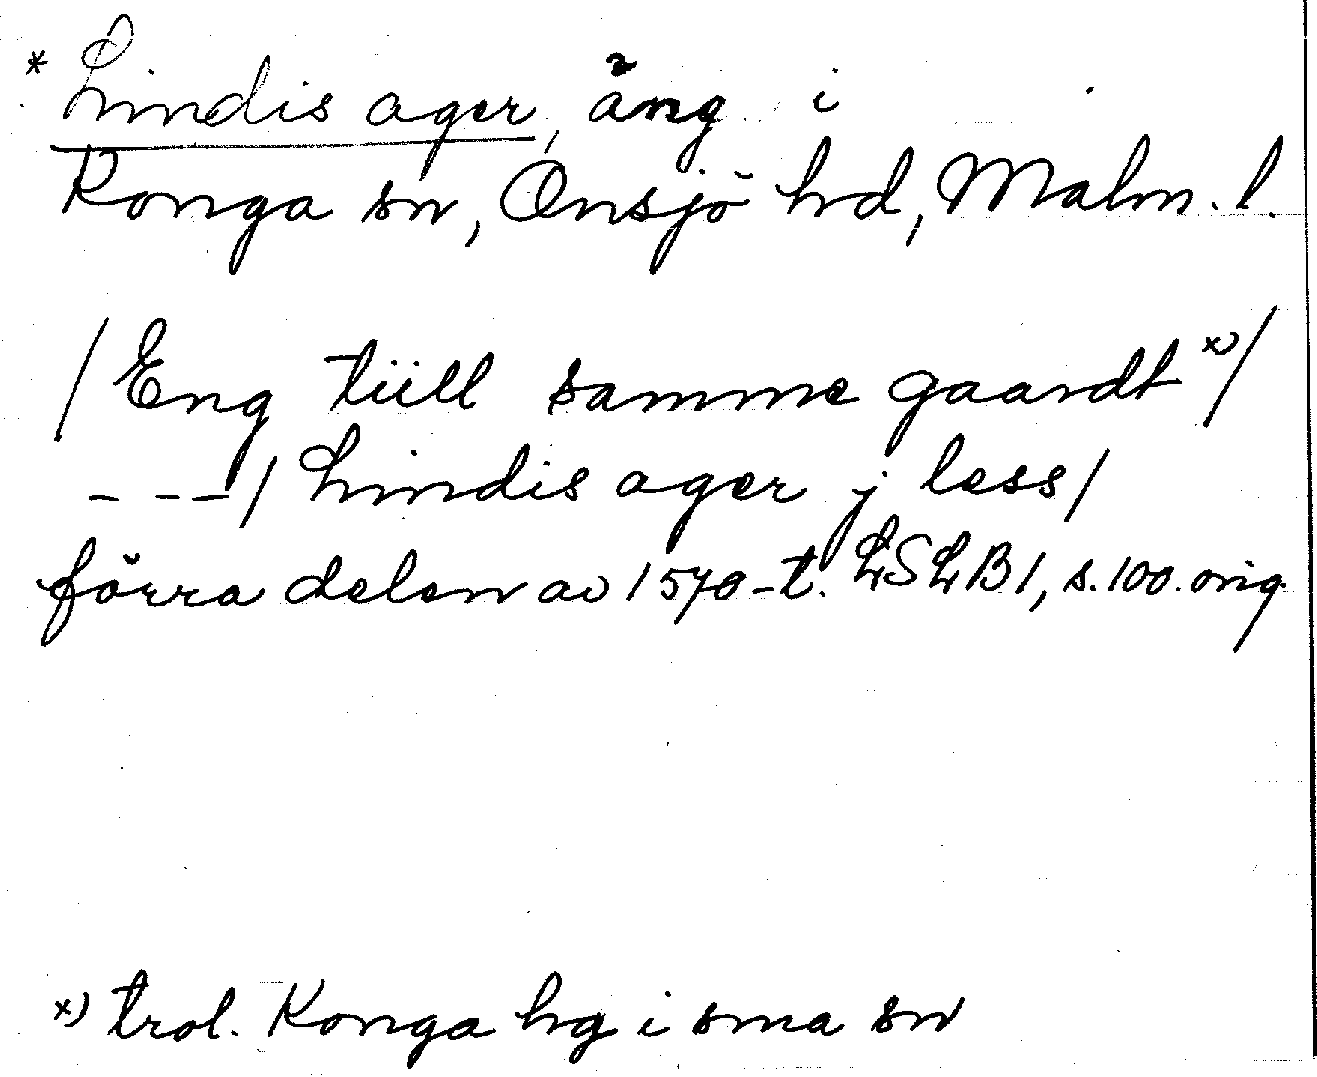 * Lindis ager, äng i
Konga sn, Onsjö hd, Malm. l.
/Eng tiill samme gaardt x)/
- - -/ Lindis ager j less/
förra delen av 1570-t. LSLB1, s. 100. orig.
x) trol. Konga by i sma sn